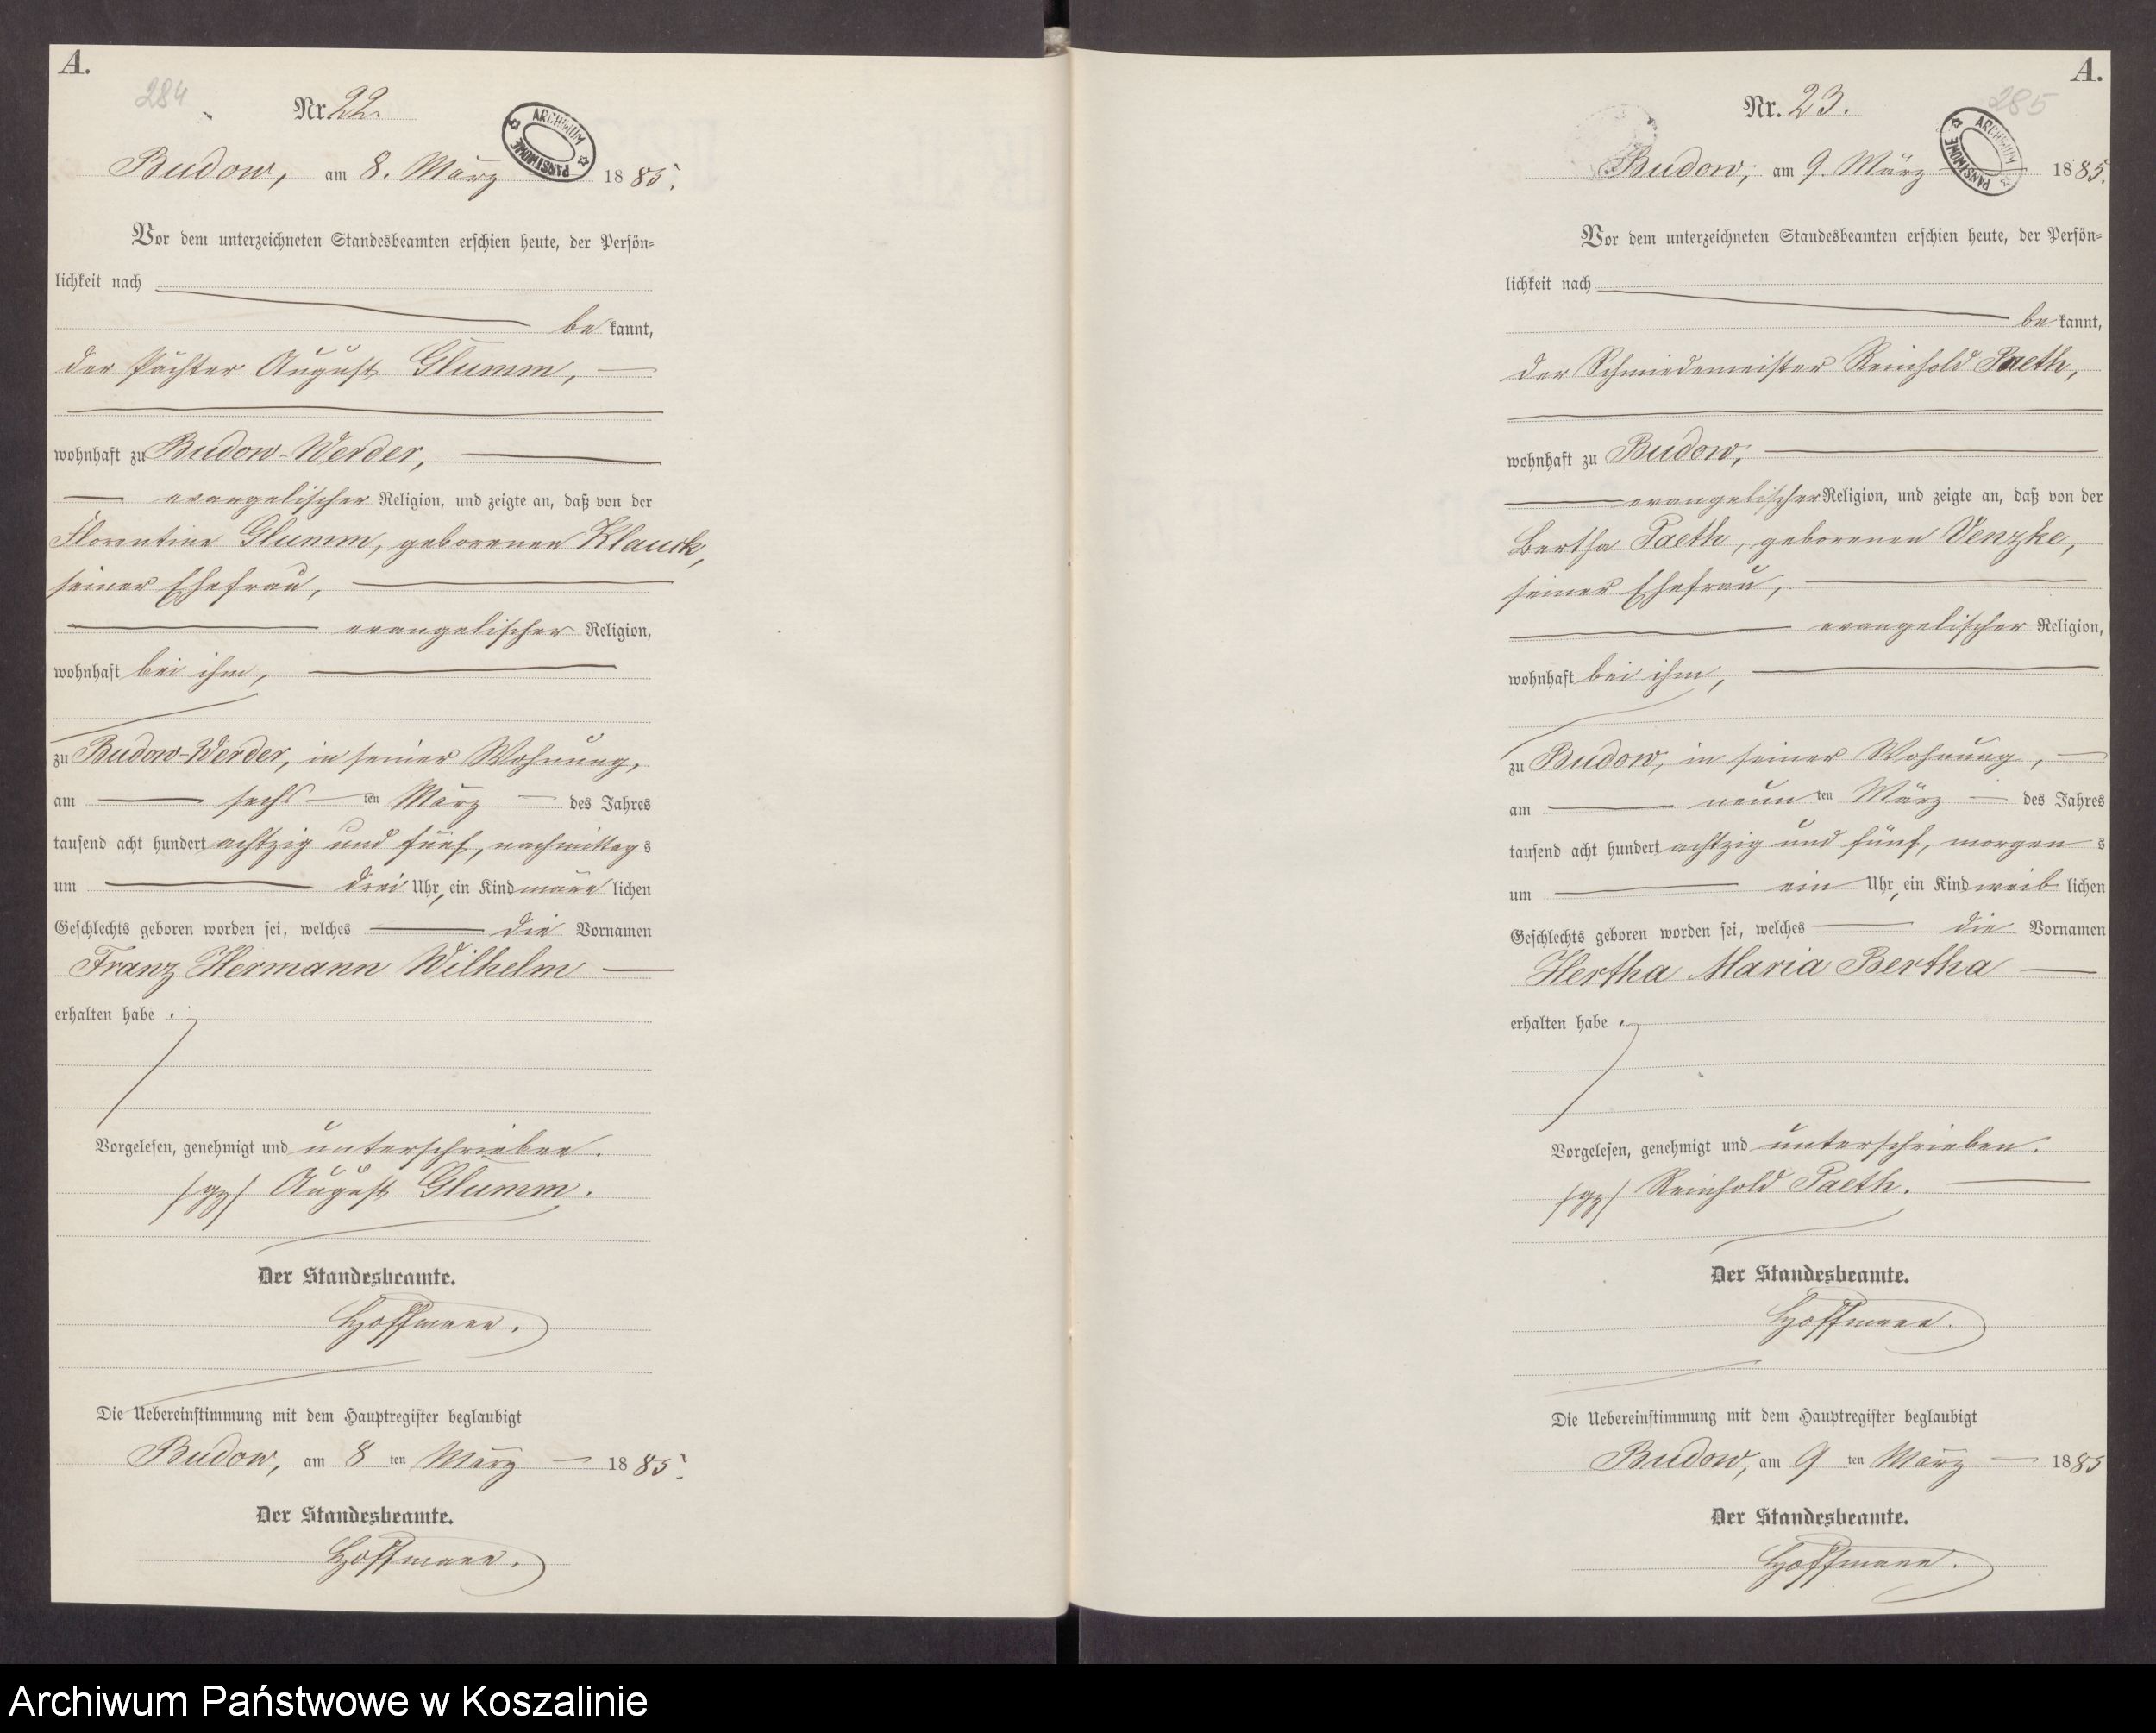 A.
284
Nr. 22.
ARCHIWUM PAŃSTWOWE
Budow, am 8. März 1885.
Vor dem unterzeichneten Standesbeamten erschien heute, der Persön=
lichkeit nach
bekannt,
der Pächter August Glumm,
wohnhaft zu Budow-Werder,
evangelischer Religion, und zeigte an, daß von der
Florentine Glumm, geborenen Klauck,
seiner Ehefrau,
evangelischer Religion,
wohnhaft bei ihm,
zu Budow-Werder, in seiner Wohnung,
am sechsten März des Jahres
tausend acht hundert achtzig und fünf, nachmittags
um drei Uhr, ein Kind männlichen
Geschlechts geboren worden sei, welches die Vornamen
Franz Hermann Wilhelm
erhalten habe.
Vorgelesen, genehmigt und unterschrieben.
/gz/ August Glumm.
Der Standesbeamte.
Hoffmann.
Die Uebereinstimmung mit dem Hauptregister beglaubigt
Budow, am 8ten März 1885.
Der Standesbeamte.
Hoffmann.
A.
285
Nr. 23.
ARCHIWUM PAŃSTWOWE
Budow, am 9. März 1885.
Vor dem unterzeichneten Standesbeamten erschien heute, der Persön=
lichkeit nach
bekannt,
der Schmiedemeister Reinhold Paeth,
wohnhaft zu Budow,
evangelischer Religion, und zeigte an, daß von der
Bertha Paeth, geborenen Venzke,
seiner Ehefrau,
evangelischer Religion,
wohnhaft bei ihm,
zu Budow, in seiner Wohnung,
am neunten März des Jahres
tausend acht hundert achtzig und fünf, morgens
um ein Uhr, ein Kind weiblichen
Geschlechts geboren worden sei, welches die Vornamen
Hertha Maria Bertha
erhalten habe.
Vorgelesen, genehmigt und unterschrieben.
/gz/ Reinhold Paeth.
Der Standesbeamte.
Hoffmann.
Die Uebereinstimmung mit dem Hauptregister beglaubigt
Budow, am 9ten März 1885
Der Standesbeamte.
Hoffmann.
Archiwum Państwowe w Koszalinie